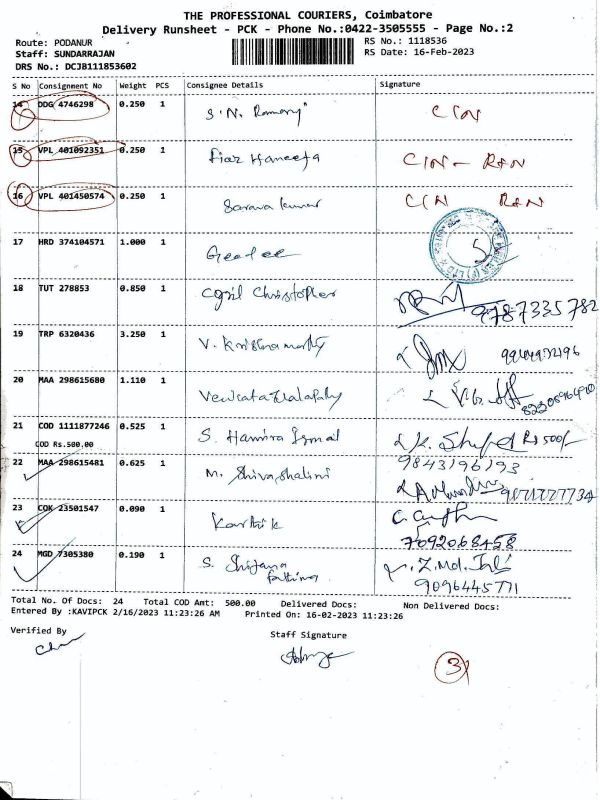 THE PROFESSIONAL COURIERS, Coimbatore
Delivery Runsheet - PCK - Phone No.:0422-3505555 - Page No.:2
Route: PODANUR
RS No.: 1118536
Staff: SUNDARRAJAN
RS Date: 16-Feb-2023
DRS No.: DCJB111853602
S No Consignment No Weight PCS Consignee Details Signature
14 DDG 4746298 0.250 1 S.N. Ramany CIN
15 VPL 401092351 0.250 1 Fiaz Haneefa CIN - RAN
16 VPL 401450574 0.250 1 Sarava kumar CIN RAN
17 HRD 374104571 1.000 1 Geetee
18 TUT 278853 0.850 1 Cyril Christopher 9787335782
19 TRP 6320436 3.250 1 V. Krishnamorthy
20 MAA 298615680 1.110 1 Venkatavalapathy
21 COD 1111877246 0.525 1 S. Hamira Ismal Rs 500/-
COD Rs.500.00
9843196193
22 MAA 298615481 0.625 1 M. Shivashalini
23 COK 23501547 0.090 1 Karthik
7092068458
24 MGD 7305380 0.190 1 S. Shifana fathima
9096445771
Total No. Of Docs: 24 Total COD Amt: 500.00 Delivered Docs: Non Delivered Docs:
Entered By :KAVIPCK 2/16/2023 11:23:26 AM Printed On: 16-02-2023 11:23:26
Verified By
Staff Signature
3